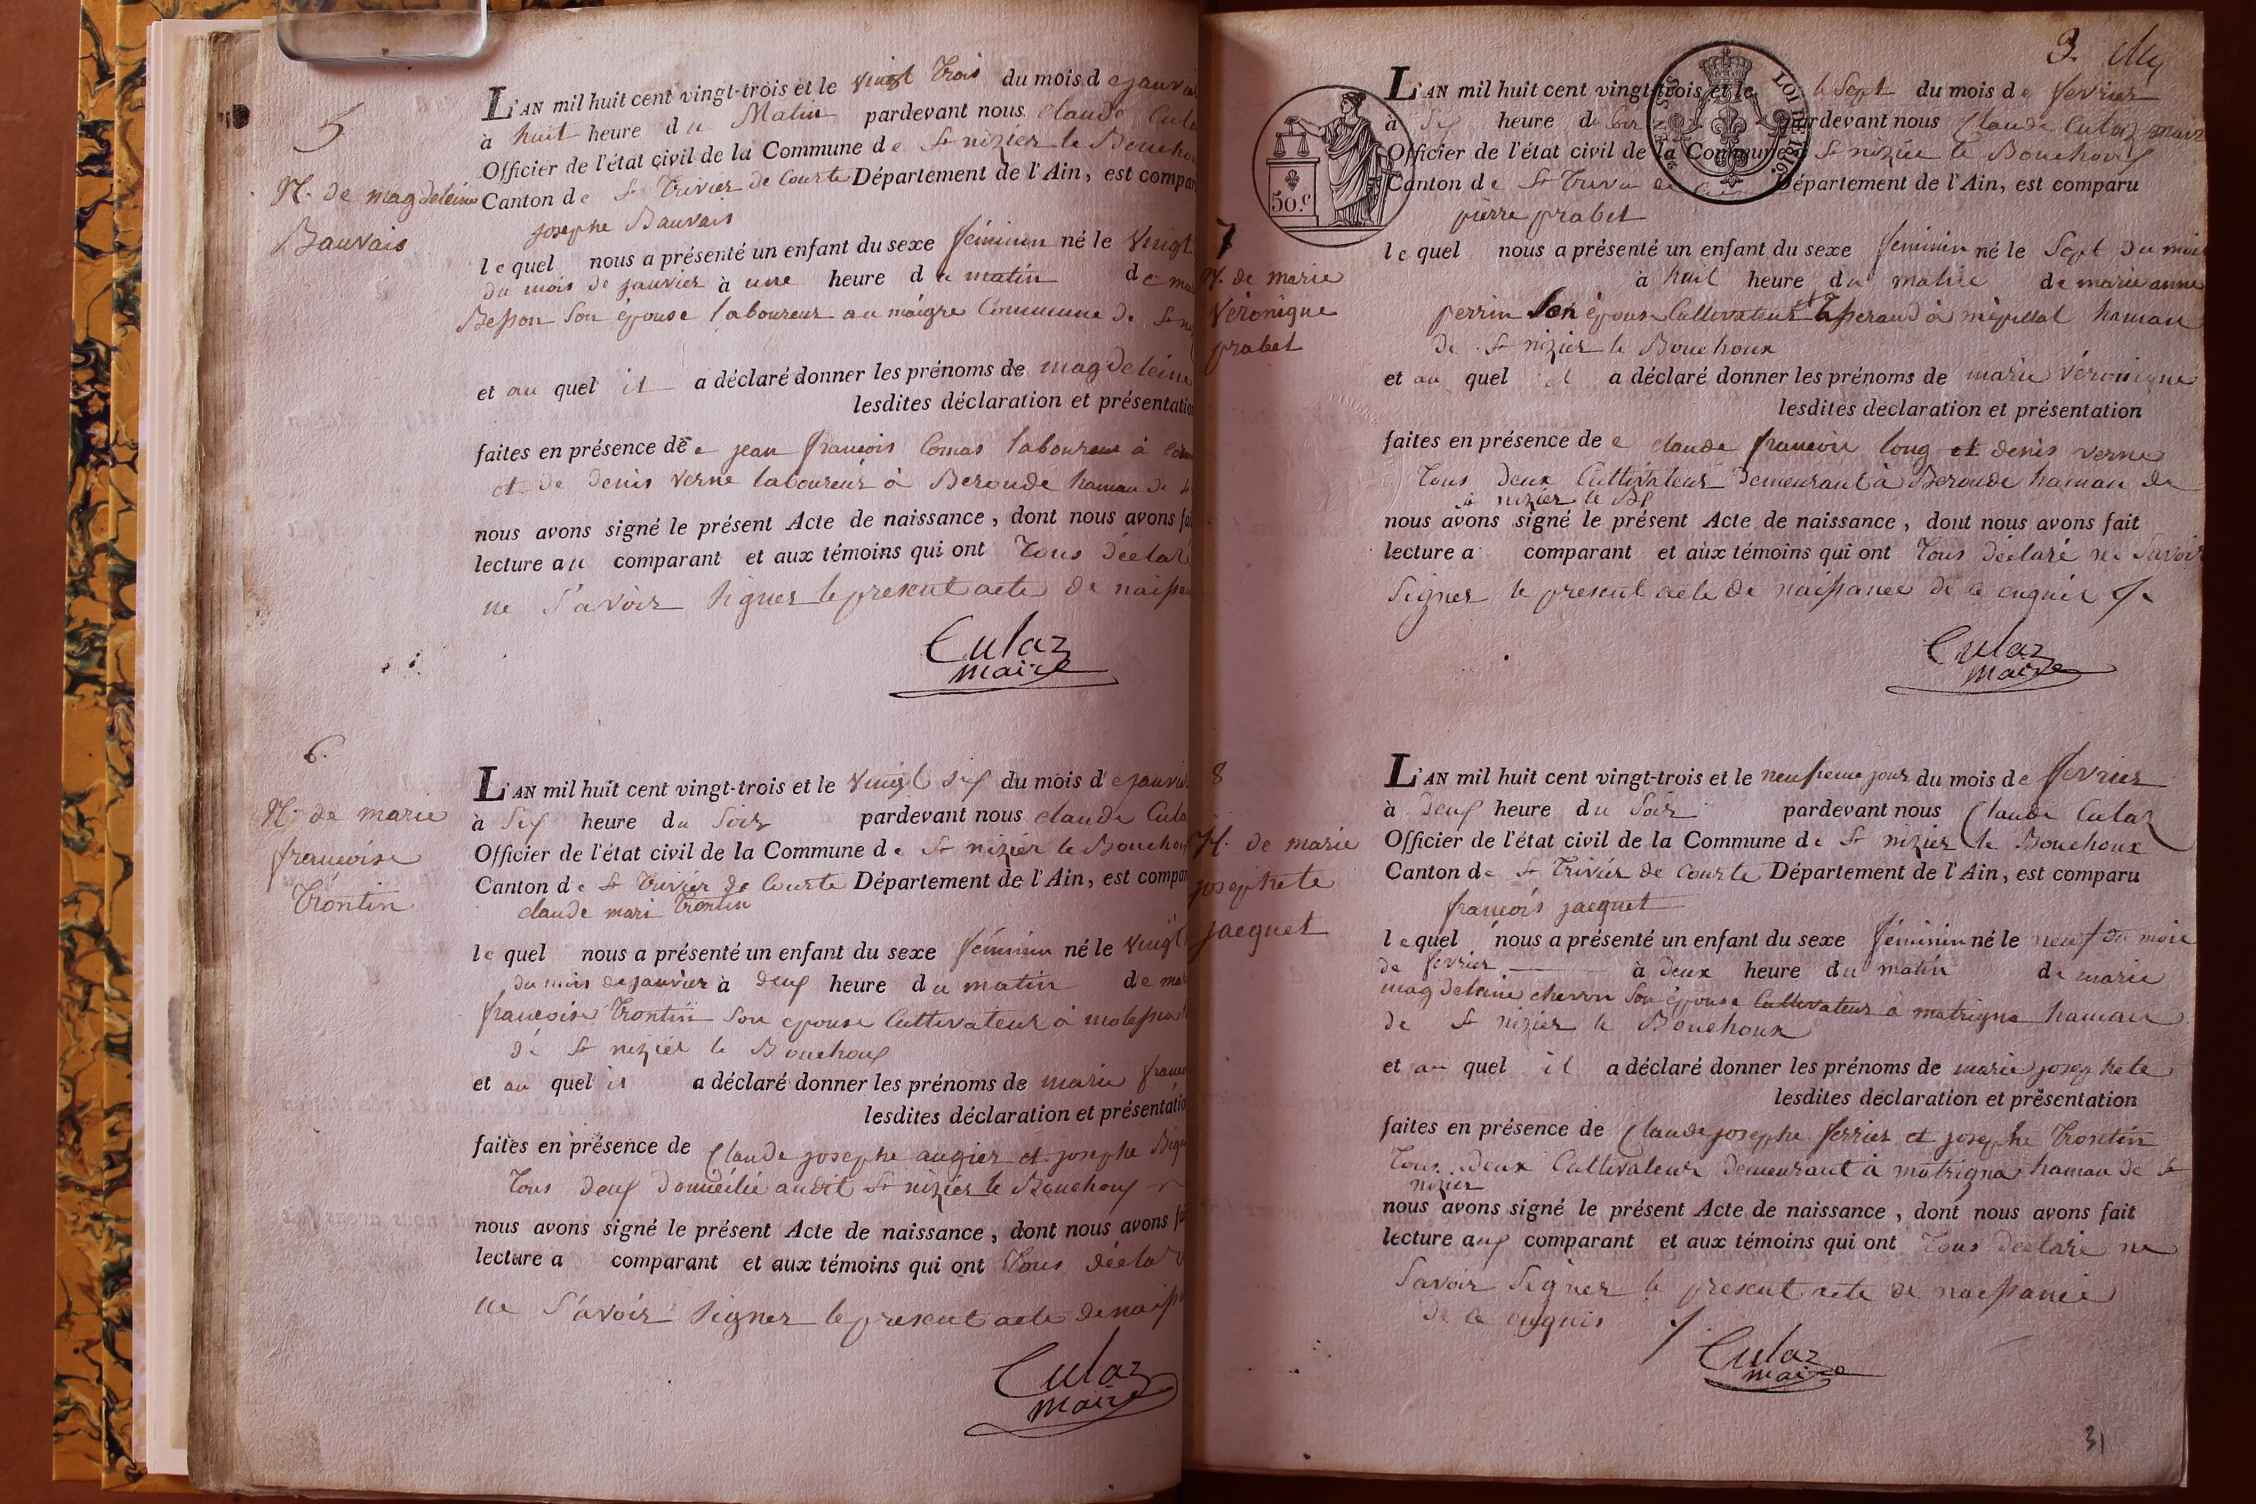 5
N. de magdeleine
Bauvais
L'AN mil huit cent vingt-trois et le vingt trois du mois de janvi
à huit heure du Matin pardevant nous Claude Cula
Officier de l'état civil de la Commune de St nizier le Boucho
Canton de St Trivier de Courte Département de l'Ain, est compar
josephe Bauvais
le quel nous a présenté un enfant du sexe féminin né le vingt
du mois de janvier à une heure du matin de ma
Besson son épouse laboureur au maigre Commune de St n
et au quel il a déclaré donner les prénoms de magdeleine
lesdites déclaration et présentatio
faites en présence de jean françois Comas laboureur à
et de denis verne laboureur à Beronde hamau de
nous avons signé le présent Acte de naissance, dont nous avons fai
lecture au comparant et aux témoins qui ont Tous déclaré
ne Savoir signer le present acte de naissa
Culaz
maire
6.
N. de marie
francoise
Trontin
L'AN mil huit cent vingt-trois et le vingt six du mois de janvie
à Six heure du Soir pardevant nous claude Cula
Officier de l'état civil de la Commune de St nizier le Bouchou
Canton de St Trivier de Courte Département de l'Ain, est compar
claude mari Trontin
le quel nous a présenté un enfant du sexe féminin né le vingt
du mois de janvier à deux heure du matin de mar
françoise Trontin son epouse Cultivateur à
de St nizier le Bouchoux
et au quel il a déclaré donner les prénoms de marie franco
lesdites déclaration et présentatio
faites en présence de Claude josephe augier et josephe
Tous deux domicilié audit St nizier le Bouchoux
nous avons signé le présent Acte de naissance, dont nous avons fa
lecture a comparant et aux témoins qui ont Tous décla
ne Savoir signer le present acte de naiss
Culaz
maire
3.
50.c
LOI DE 1816.
7
N. de marie
Véronique
prabel
L'AN mil huit cent vingt-trois et le le Sept du mois de fevrier
à Six heure du soir pardevant nous Claude Culaz maire
Officier de l'état civil de la Commune de St nizier le Bouchoux
Canton de St Trivier de Département de l'Ain, est comparu
pierre prabel
le quel nous a présenté un enfant du sexe féminin né le Sept du mois
à huit heure du matin de marie anne
perrin son épouse Cultivateur à hamau
de St nizier le Bouchoux
et au quel il a déclaré donner les prénoms de marie véronique
lesdites declaration et présentation
faites en présence de claude francois long et denis verne
Tous deux Cultivateur demeurant à Beronde hamau de
St nizier le Bx
nous avons signé le présent Acte de naissance, dont nous avons fait
lecture a comparant et aux témoins qui ont Tous déclaré ne Savoir
Signer le present acte de naissance de ce enquis
Culaz
maire
8
N. de marie
josephete
jacquet
L'AN mil huit cent vingt-trois et le neufieme jour du mois de fevrier
à deux heure du Soir pardevant nous Claude Culaz
Officier de l'état civil de la Commune de St nizier le Bouchoux
Canton de St Trivier de Courte Département de l'Ain, est comparu
françois jacquet
le quel nous a présenté un enfant du sexe féminin né le neuf du mois
de février à deux heure du matin de marie
magdeleine chevron Son épouse Cultivateur à matrigna hamau
de St nizier le Bouchoux
et au quel il a déclaré donner les prénoms de marie josephete
lesdites déclaration et présentation
faites en présence de Claude josephe ferrier et josephe Trontin
Tous deux Cultivateur demeurant à matrigna hamau de St
nizier
nous avons signé le présent Acte de naissance, dont nous avons fait
lecture aux comparant et aux témoins qui ont Tous déclaré ne
Savoir Signer le present acte de naissance
de ce enquis
Culaz
maire
31